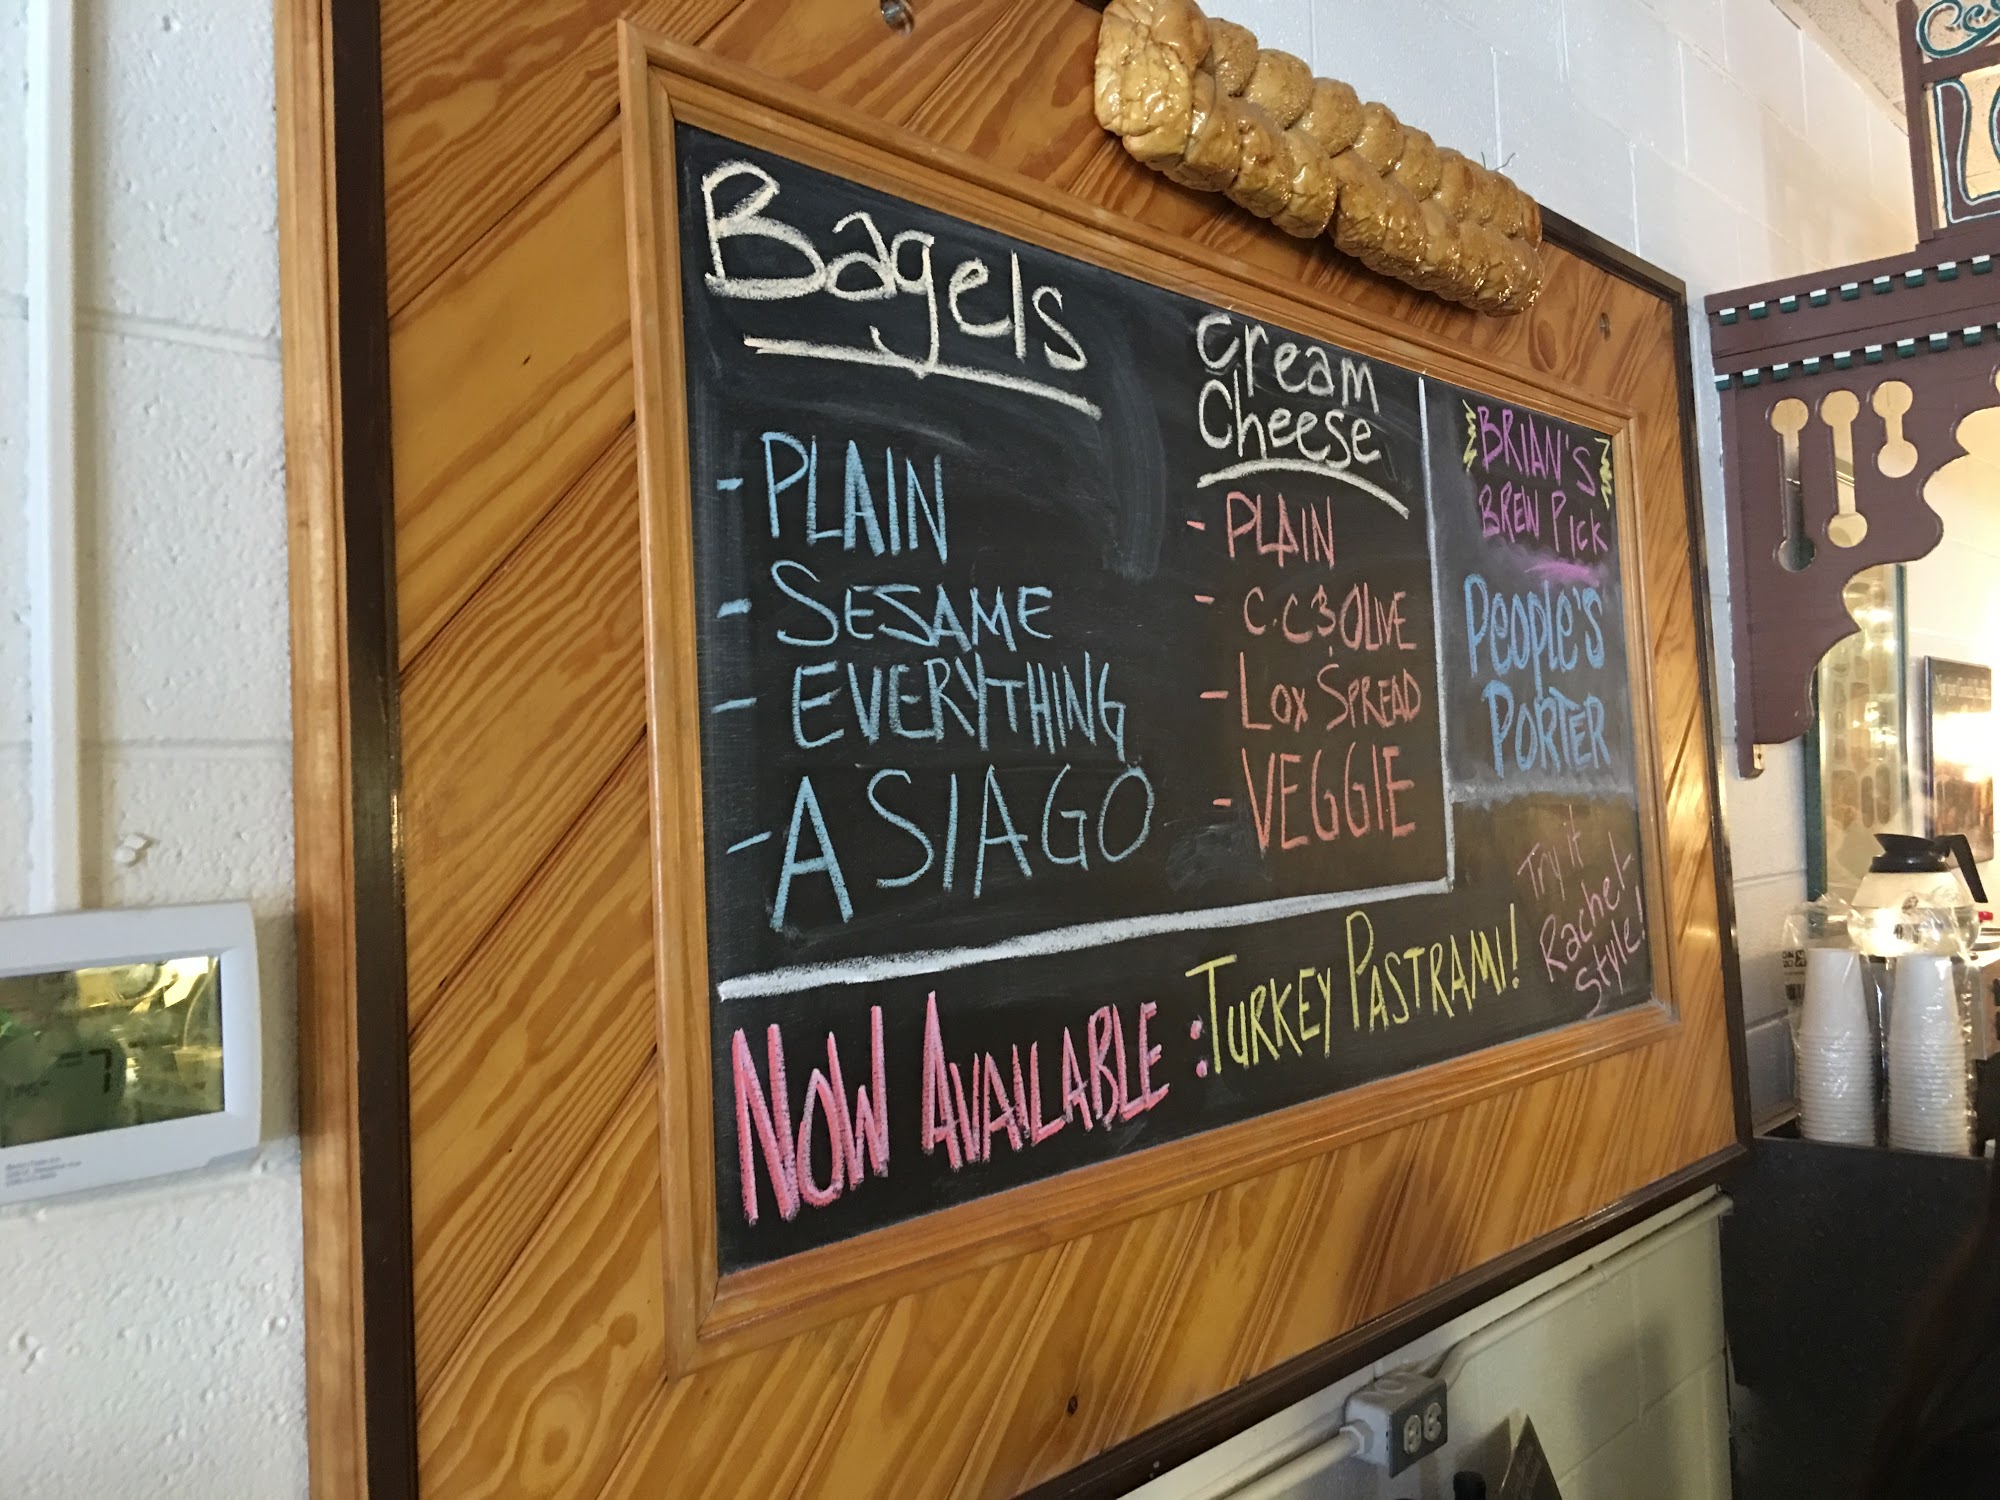 Bagels
- PLAIN
- SESAME
- EVERYTHING
- ASIAGO
Cream
Cheese
- PLAIN
- C.C & OLIVE
- LOX SPREAD
- VEGGIE
BRIAN'S
BREW PICK
PEOPlE'S
PORTER
Try it
Rachel-
Style!
NOW AVAILABLE : TURKEY PASTRAMI!